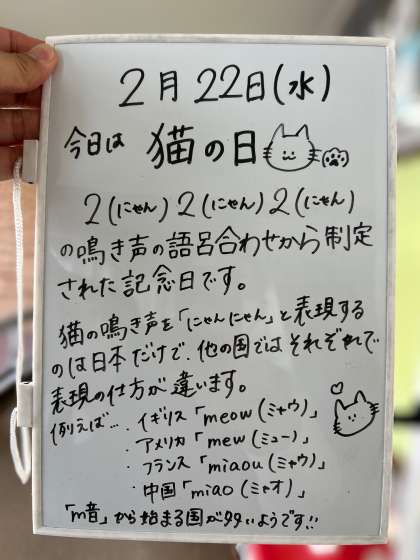 2月22日(水)
今日は 猫の日
2(にゃん)2(にゃん)2(にゃん)
の鳴き声の語呂合わせから制定
された記念日です。
猫の鳴き声を「にゃんにゃん」と表現する
のは日本だけで、他の国ではそれぞれで
表現の仕方が違います。
例えば…・イギリス「meow(ミャウ)」
・アメリカ「mew(ミュー)」
・フランス「miaou(ミャウ)」
・中国「miao(ミャオ)」
「m音」から始まる国が多いようです!!